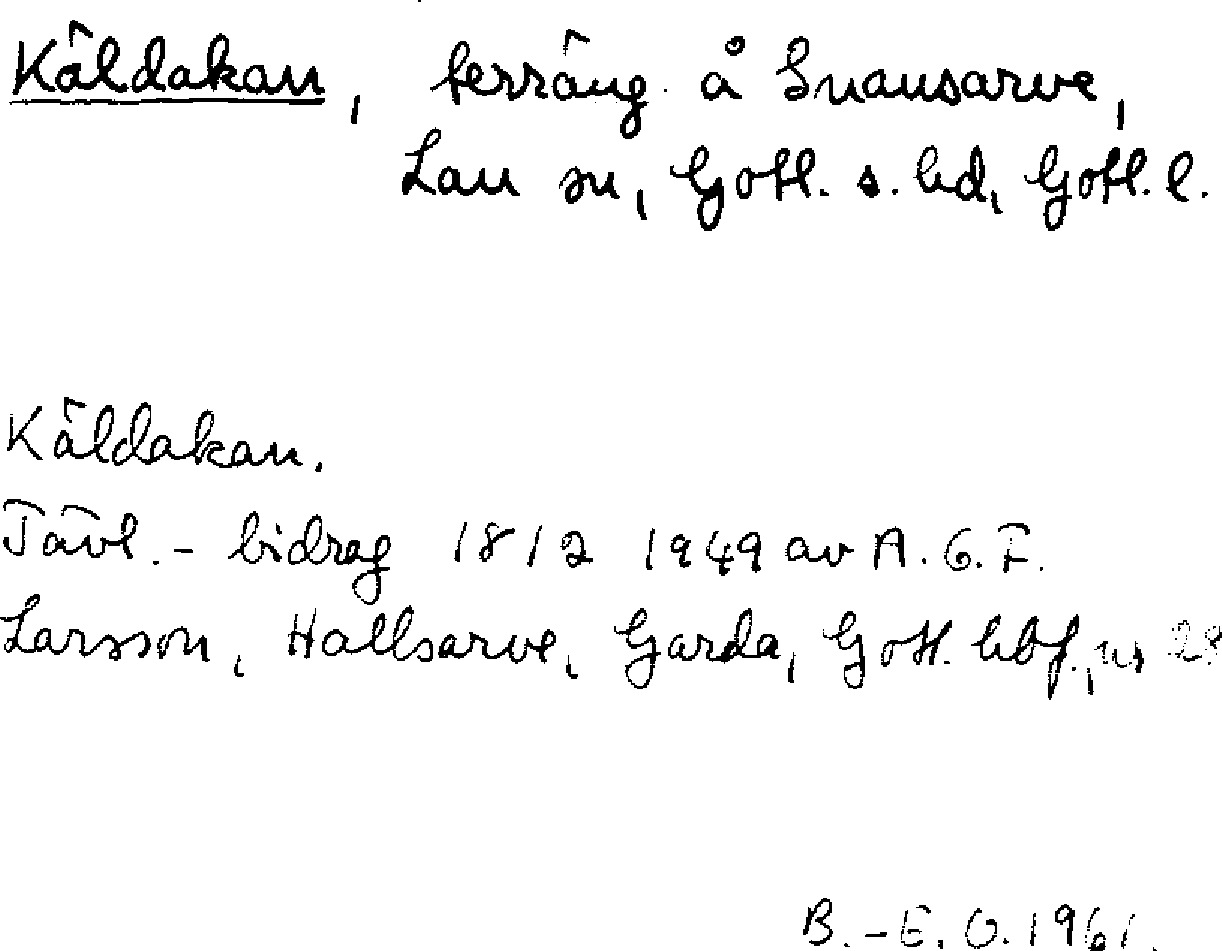 Käldakan, terräng å Snausarve,
Lau sn, Gotl. s. hd, Gotl. l.
Käldakan.
Tävl.-bidrag 18/2 1949 av A. G. F.
Larsson, Hallsarve, Garda, Gotl. hbf., nr
B.-E. O. 1961.